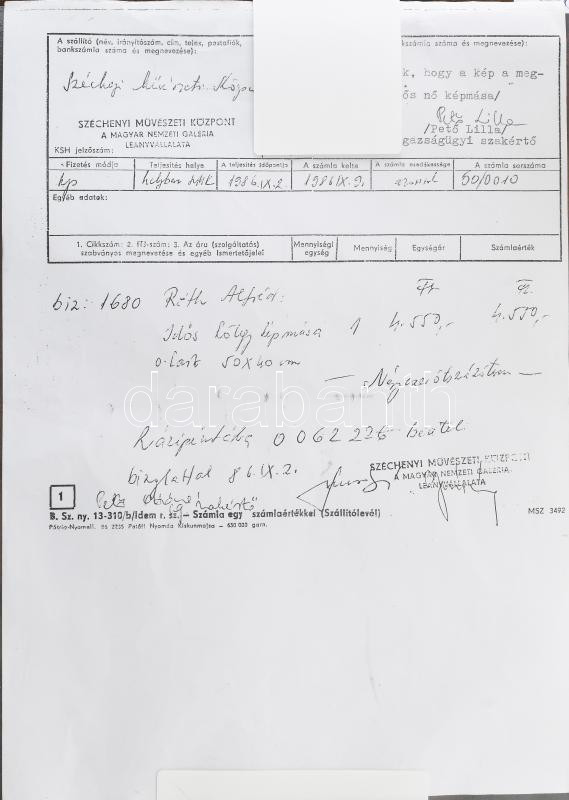 A szállító (név, irányítószám, cím, telex, postafiók,
bankszámla száma és megnevezése):
kszámla száma és megnevezése):
k, hogy a kép a meg-
ős nő képmása/
Pető Lilla
/Pető Lilla/
gazságügyi szakértő
SZÉCHENYI MÜVÉSZETI KÖZPONT
A MAGYAR NEMZETI GALÉRIA
LEÁNYVÁLLALATA
KSH jelzőszám:
Fizetés módja Teljesítés helye A teljesítés időpontja A számla kelte A számla esedékessége A számla sorszáma
kp helyben 1986.IX.2. 1986.IX.9. azonnal 50/0010
Egyéb adatok:
1. Cikkszám: 2. ITJ-szám: 3. Az áru (szolgáltatás)
szabványos megnevezése és egyéb ismertetőjelei
Mennyiségi
egység
Mennyiség Egységár Számlaérték
Ft Ft
biz: 1680 Róth Alfréd:
Idős hölgy képmása 1 4.550,- 4.550,-
o. kart 50x40 cm
darabanth
0062226
bizylattal 86.IX.2.
SZÉCHENYI MÜVÉSZETI KÖZPONT
A MAGYAR NEMZETI GALÉRIA
LEÁNYVÁLLALATA
1
B. Sz. ny. 13-310/b/idem r. sz. – Számla egy számlaértékkel (Szállítólevél)
MSZ 3492